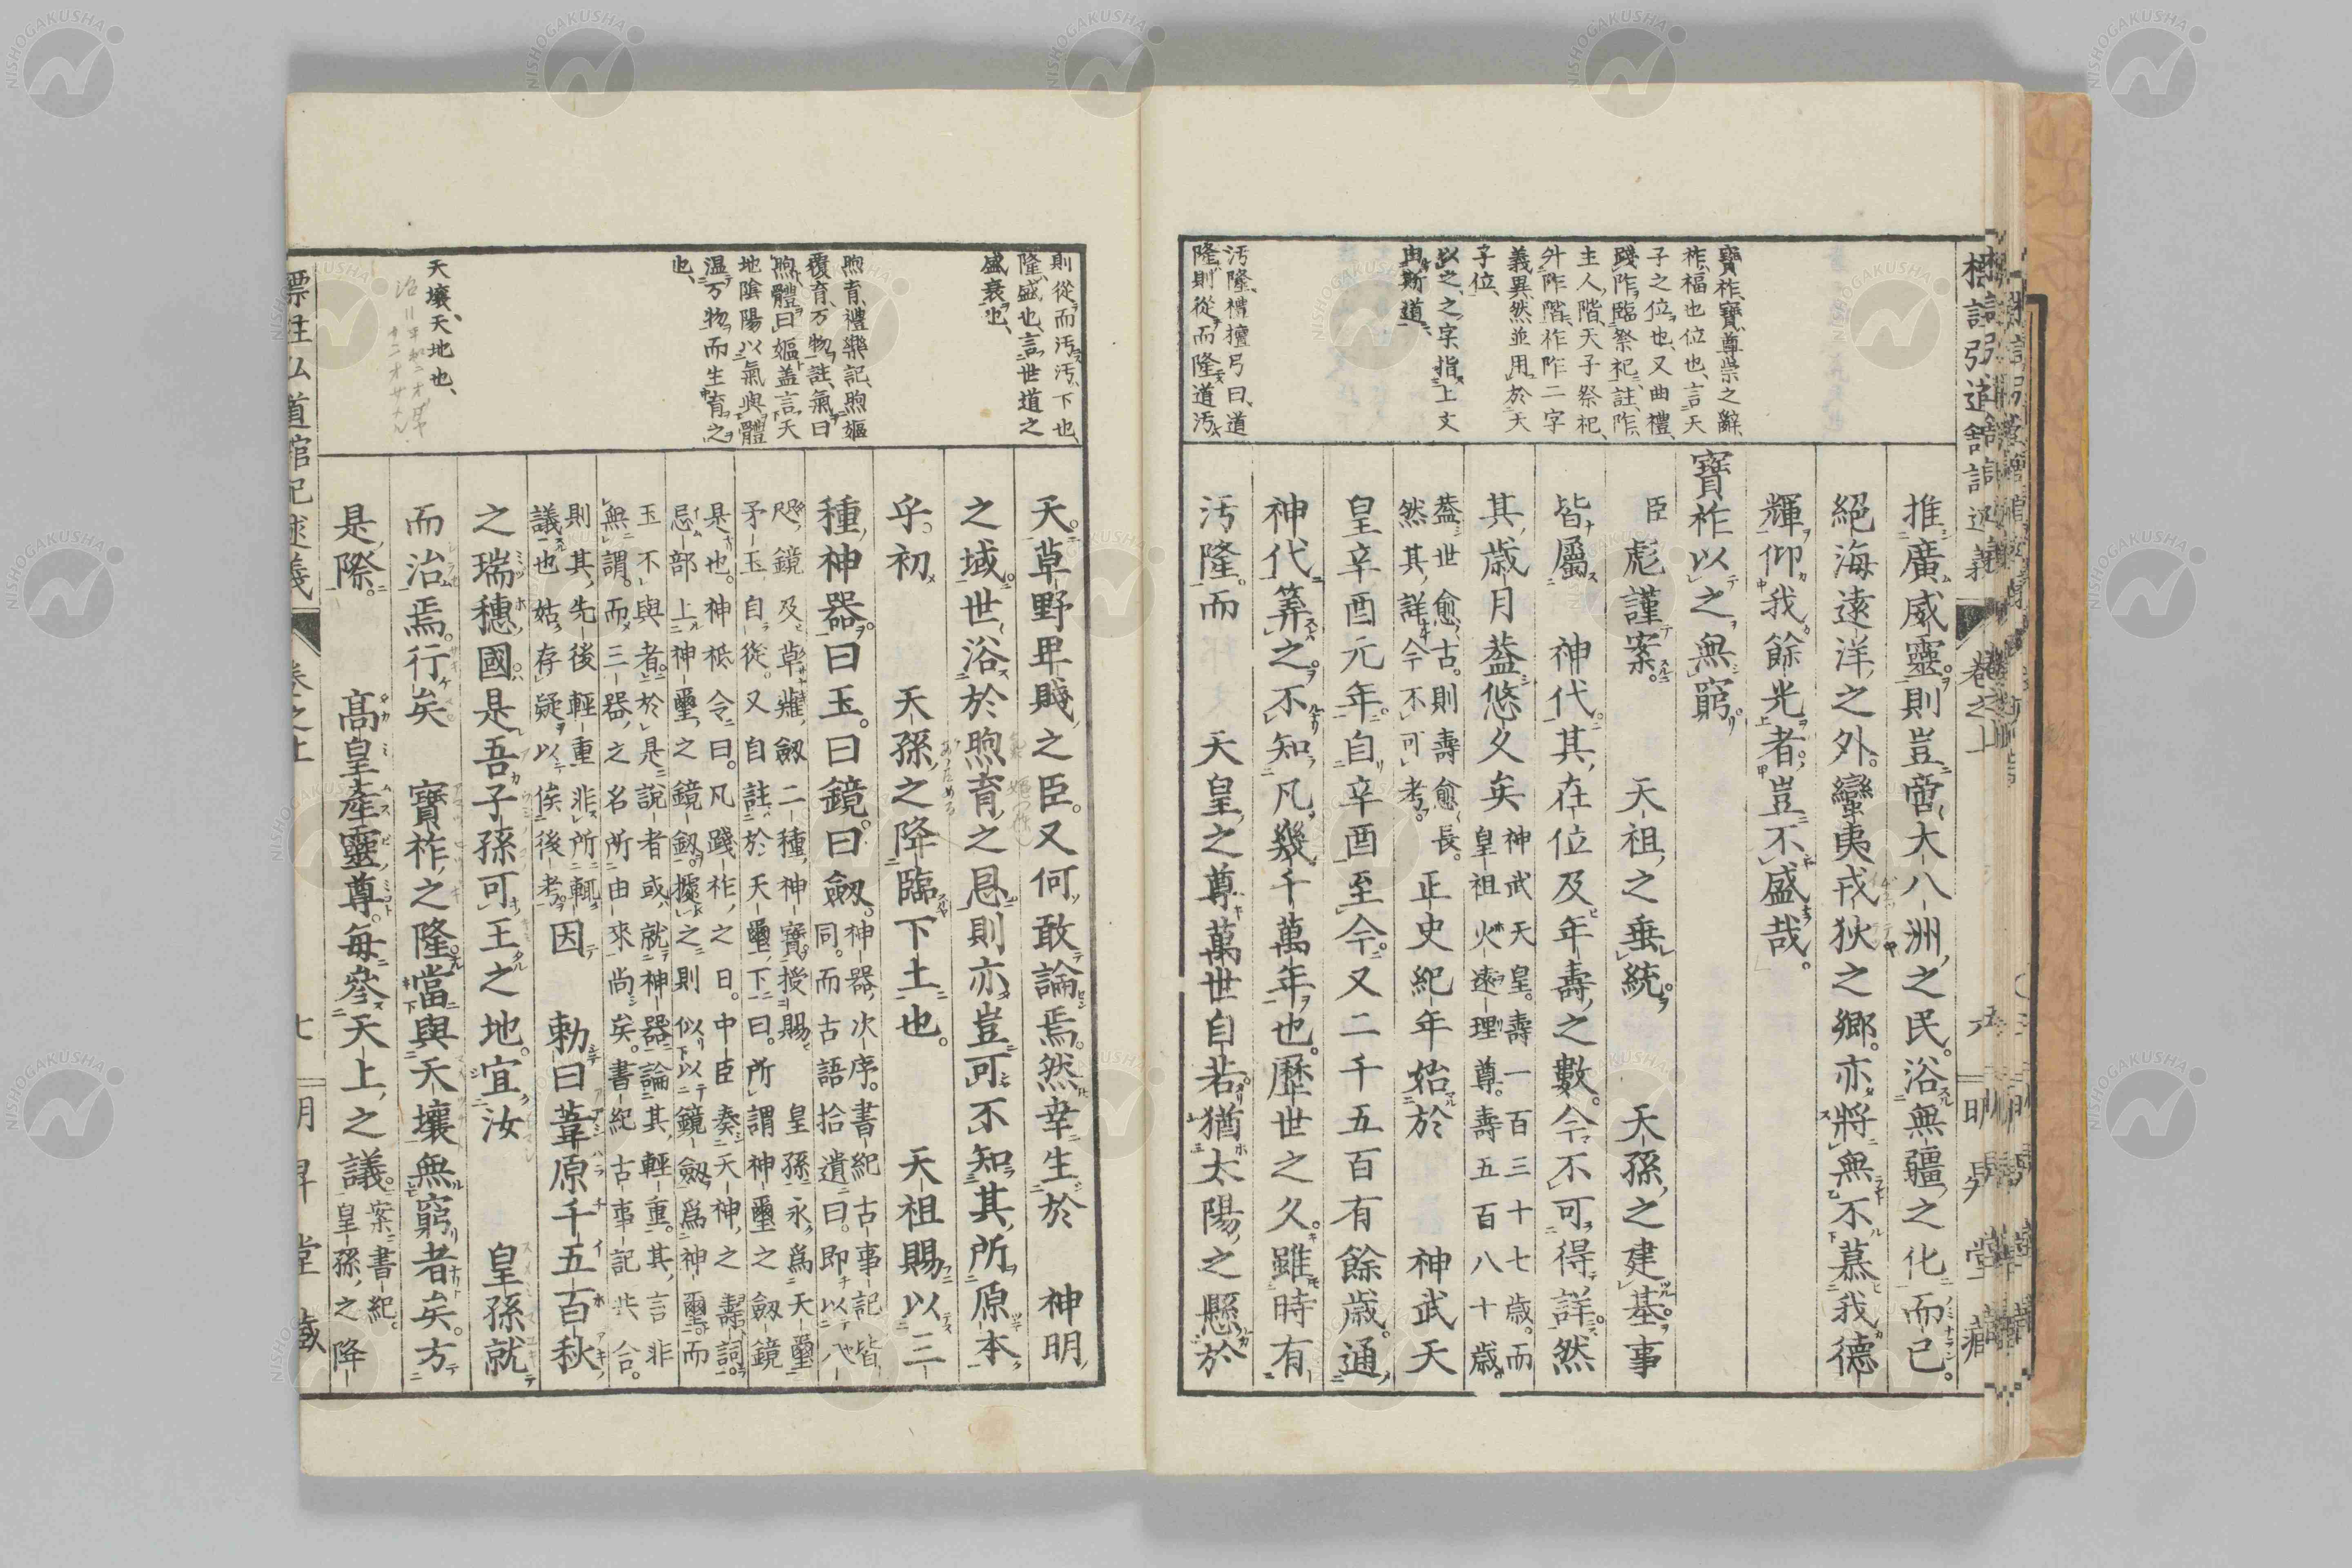 寶祚、寶、尊崇之辭、
祚、福也、位也、言天
子之位也、又曲禮、
踐阼、臨祭祀、註、阼、
主人階、天子祭祀、
升阼階、祚阼二字
義異、然並用於天
子位、
以之、之字、指上文
由斯道、
汚隆、禮檀弓曰、道
隆、則從而隆、道汚、
推廣威靈則豈啻大八洲之民。浴無疆之化而已。
絕海遠洋之外。蠻夷戎狄之鄉。亦將無不慕我德
輝仰我餘光者。豈不盛哉。
寶祚以之無窮。
臣彪謹案。天祖之垂統。天孫之建基。事
皆屬神代。其在位及年壽之數。今不可得詳。然
其歲月葢悠久矣
神武天皇。壽一百三十七歲。而
皇祖火遠理尊。壽五百八十歲。
葢世愈古。則壽愈長。
然其詳今不可考。
正史紀年始於神武天
皇辛酉元年。自辛酉至今。又二千五百有餘歲。通
神代筭之。不知凡幾千萬年也。歷世之久。雖時有
汚隆。而天皇之尊萬世自若。猶太陽之懸於
則從而汚、汚、下也、
隆、盛也、言世道之
盛衰也、
煦育、禮樂記、煦嫗
覆育万物、註、氣曰
煦、體曰嫗、盖言天
地陰陽以氣與體
温万物而生育之
也、
天壤、天地也、
天。草野卑賤之臣。又何敢論焉。然幸生於神明
之域。世浴於煦育之恩。則亦豈可不知其所原本
乎。初天孫之降臨下土也。天祖賜以三
種神器。曰玉。曰鏡。曰劒。
神器次序。書紀古事記皆
同。而古語拾遺曰。即以八
咫鏡及草薙劒二種神寶。授賜皇孫。永爲天璽
矛玉自從。又自註於天璽下曰。所謂神璽之劒鏡
是也。神祇令曰。凡踐祚之日。中臣奏天神之壽詞。
忌部上神璽之鏡劒。據之則似以鏡劒爲神璽。而
玉不與者。於是説者或就神器論其輕重。其言非
無謂。而三器之名所由來尚矣。書紀古事記共合。
則其先後輕重非所輒
議也。姑存疑以俟後考。
因勅曰。葦原千五百秋
之瑞穗國。是吾子孫可王之地。宜汝皇孫就
而治焉。行矣寶祚之隆。當與天壤無窮者矣。方
是際。高皇產靈尊。每參天上之議。
案書紀。
皇孫之降